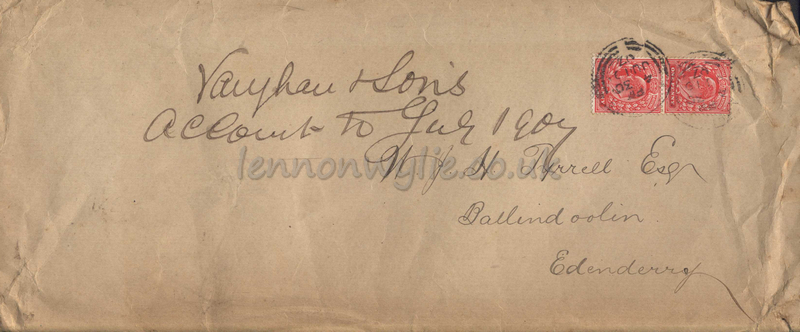 Vaughan & Sons
Account to July 1907
W J H Tyrrell Esqr
Ballindoolin
Edenderry
lennonwylie.co.uk